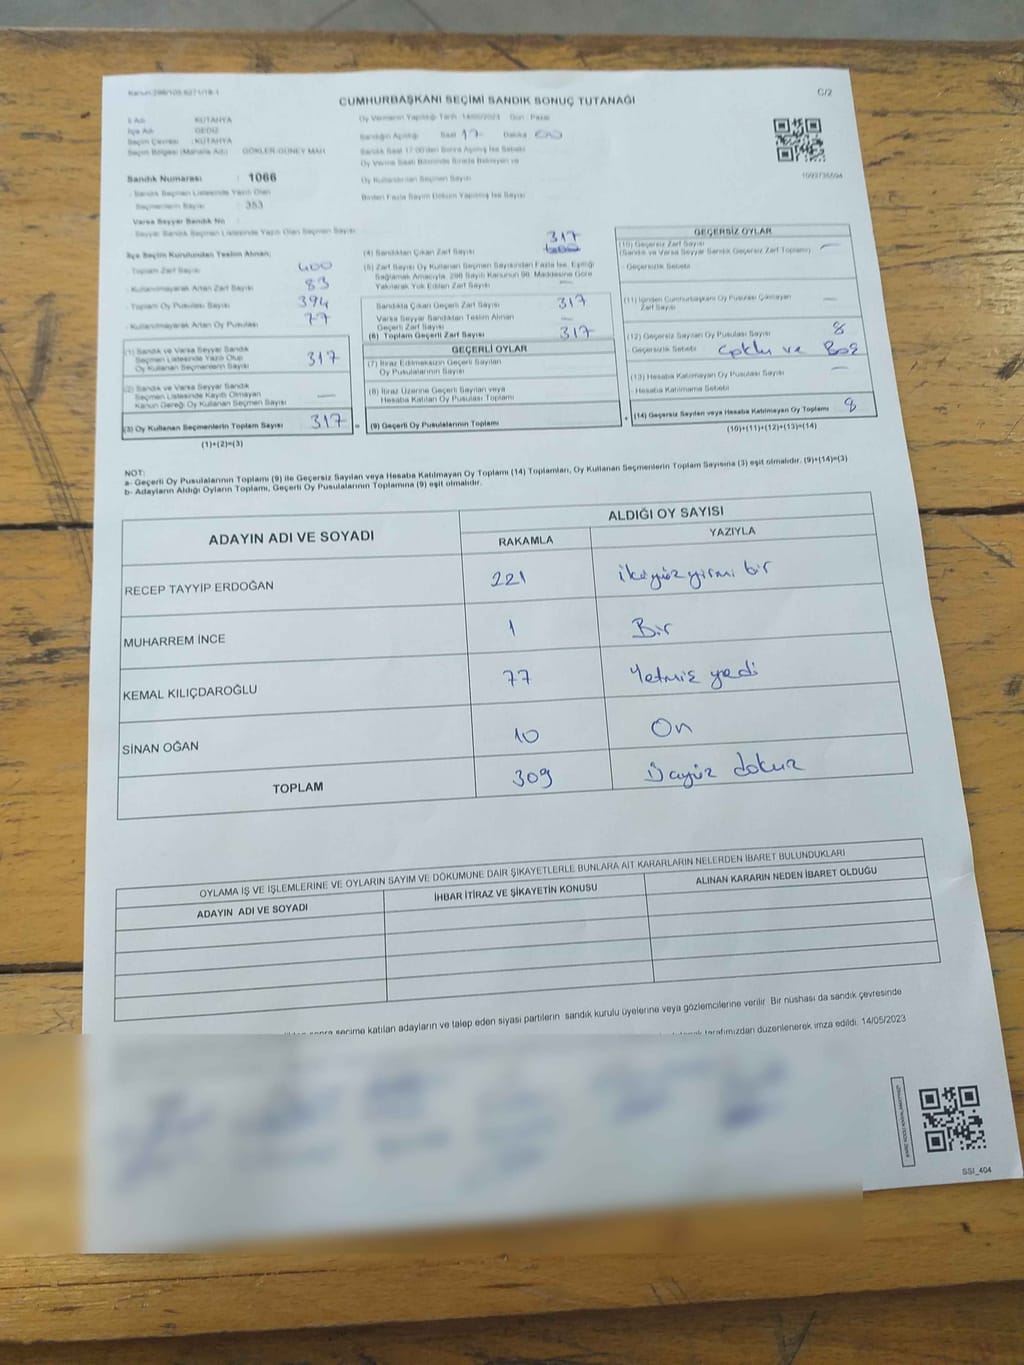 C/2
CUMHURBAŞKANI SEÇİMİ SANDIK SONUÇ TUTANAĞI
İl Adı : KÜTAHYA
İlçe Adı : GEDİZ
Seçim Çevresi : KÜTAHYA
Seçim Bölgesi (Mahalle Adı) : GÖKLER/GÜNEY MAH.
Oy Vermenin Yapıldığı Tarih 14/05/2023 Gün : Pazar
Sandığın Açıldığı Saat 17 Dakika 00
Sandık Saat 17:00'den Sonra Açılmış İse Sebebi
Oy Verme Saati Bitiminde Sırada Bekleyen ve
Oy Kullandırılan Seçmen Sayısı
Birden Fazla Sayım Döküm Yapılmış İse Sayısı
Sandık Numarası : 1066
Sandık Seçmen Listesinde Yazılı Olan
Seçmenlerin Sayısı : 353
Varsa Seyyar Sandık No
Seyyar Sandık Seçmen Listesinde Yazılı Olan Seçmen Sayısı
İlçe Seçim Kurulundan Teslim Alınan;
Toplam Zarf Sayısı 400
Kullanılmayarak Artan Zarf Sayısı 83
Toplam Oy Pusulası Sayısı 394
Kullanılmayarak Artan Oy Pusulası 77
(1) Sandık ve Varsa Seyyar Sandık
Seçmen Listesinde Yazılı Olup
Oy Kullanan Seçmenlerin Sayısı 317
(2) Sandık ve Varsa Seyyar Sandık
Seçmen Listesinde Kayıtlı Olmayan
Kanun Gereği Oy Kullanan Seçmen Sayısı —
(3) Oy Kullanan Seçmenlerin Toplam Sayısı 317 =
(1)+(2)=(3)
(4) Sandıktan Çıkan Zarf Sayısı 317
(5) Zarf Sayısı Oy Kullanan Seçmen Sayısından Fazla İse, Eşitliği
Sağlamak Amacıyla, 298 Sayılı Kanunun 98. Maddesine Göre
Yakılarak Yok Edilen Zarf Sayısı —
Sandıkta Çıkan Geçerli Zarf Sayısı 317
Varsa Seyyar Sandıktan Teslim Alınan
Geçerli Zarf Sayısı —
(6) Toplam Geçerli Zarf Sayısı 317
GEÇERLİ OYLAR
(7) İtiraz Edilmeksizin Geçerli Sayılan
Oy Pusulalarının Sayısı
(8) İtiraz Üzerine Geçerli Sayılan veya
Hesaba Katılan Oy Pusulası Toplamı
(9) Geçerli Oy Pusulalarının Toplamı +
GEÇERSİZ OYLAR
(10) Geçersiz Zarf Sayısı —
(Sandık ve Varsa Seyyar Sandık Geçersiz Zarf Toplamı)
Geçersizlik Sebebi
(11) İçinden Cumhurbaşkanı Oy Pusulası Çıkmayan
Zarf Sayısı —
(12) Geçersiz Sayılan Oy Pusulası Sayısı 8
Geçersizlik Sebebi Çoklu ve Boş
(13) Hesaba Katılmayan Oy Pusulası Sayısı —
Hesaba Katılmama Sebebi
(14) Geçersiz Sayılan veya Hesaba Katılmayan Oy Toplamı 8
(10)+(11)+(12)+(13)=(14)
NOT:
a- Geçerli Oy Pusulalarının Toplamı (9) ile Geçersiz Sayılan veya Hesaba Katılmayan Oy Toplamı (14) Toplamları, Oy Kullanan Seçmenlerin Toplam Sayısına (3) eşit olmalıdır. (9)+(14)=(3)
b- Adayların Aldığı Oyların Toplamı, Geçerli Oy Pusulalarının Toplamına (9) eşit olmalıdır.
ADAYIN ADI VE SOYADI
ALDIĞI OY SAYISI
RAKAMLA YAZIYLA
RECEP TAYYİP ERDOĞAN 221 ikiyüz yirmi bir
MUHARREM İNCE 1 Bir
KEMAL KILIÇDAROĞLU 77 Yetmiş yedi
SİNAN OĞAN 10 On
TOPLAM 309 Üçyüz dokuz
OYLAMA İŞ VE İŞLEMLERİNE VE OYLARIN SAYIM VE DÖKÜMÜNE DAİR ŞİKAYETLERLE BUNLARA AİT KARARLARIN NELERDEN İBARET BULUNDUKLARI
ADAYIN ADI VE SOYADI İHBAR İTİRAZ VE ŞİKAYETİN KONUSU ALINAN KARARIN NEDEN İBARET OLDUĞU
sonra seçime katılan adayların ve talep eden siyasi partilerin sandık kurulu üyelerine veya gözlemcilerine verilir. Bir nüshası da sandık çevresinde
tarafımızdan düzenlenerek imza edildi. 14/05/2023
SSI_404